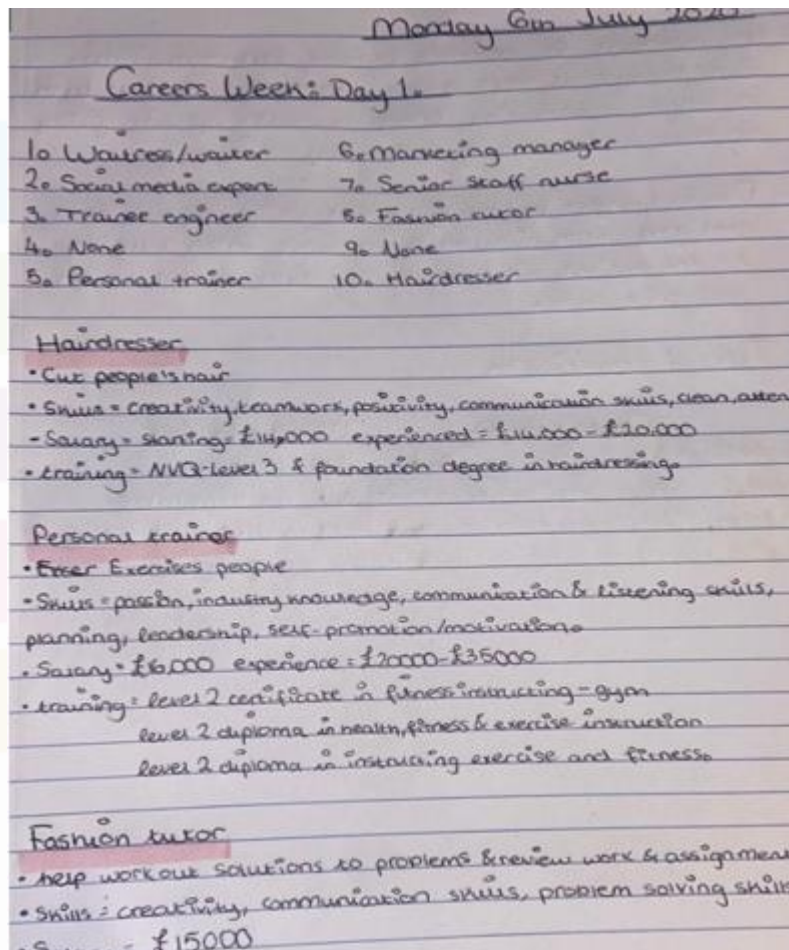 Monday 6th July 2020
Careers Week: Day 1.
1. Waitress/waiter
2. Social media expert
3. Trainee engineer
4. None
5. Personal trainer
6. Marketing manager
7. Senior staff nurse
8. Fashion tutor
9. None
10. Hairdresser
Hairdresser
• Cut people's hair
• Skills = creativity, teamwork, positivity, communication skills, clean,
- Salary = starting = £14,000 experienced = £14,000 - £20,000
• training = NVQ-level 3 & foundation degree in hairdressing.
Personal trainer
• Exercises people
• Skills = passion, industry knowledge, communication & listening skills,
planning, leadership, self-promotion/motivation.
• Salary = experience = £20000-£35000
• training = level 2 certificate in fitness instructing - gym
level 2 diploma in health, fitness & exercise instruction
level 2 diploma in instructing exercise and fitness.
Fashion tutor
• help workout solutions to problems & review work & assignmen
• Skills = creativity, communication skills, problem solving skill
£15000